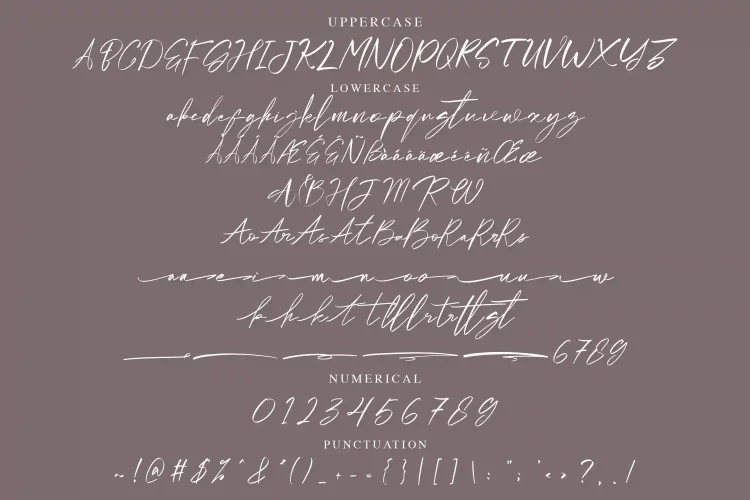 UPPERCASE
ABCDEFGHIJKLMNOPQRSTUVWXYZ
LOWERCASE
abcdefghijklmnopqrstuvwxyz
ÆÉ Ñ œ
A B H J M R W
AoArAsAtBaBoRaRrRs
aa e i m n o o u u w
b h k t t ll lt rt tt st
6789
NUMERICAL
0123456789
PUNCTUATION
~!@#$%^&*()_+-={}|[]\:";'<>?,./